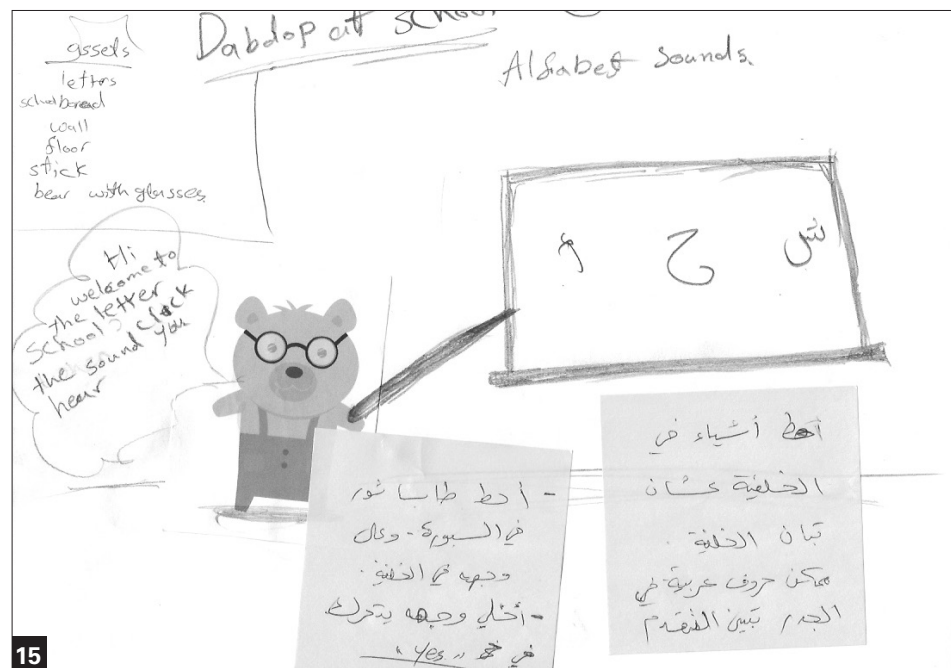 Dabdop at school
Alfabet sounds.
assets
letters
wall
floor
stick
bear with glasses
Hi
welcome to
the letter
school click
the sound you
hear
أ ح ش
- أحط طباشور
في السبورة - وعلى
وجهه في الخلفية.
- أخلي وجهه يتحرك
في "Yes"
أحط أشياء في
الخلفية عشان
تبان الخلفية.
ممكن حروف عربية في
الجدر تبين التقدم
15